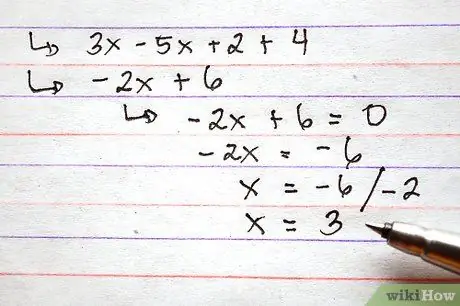 ↳ 3x - 5x + 2 + 4
↳ -2x + 6
↳ -2x + 6 = 0
-2x = -6
x = -6 / -2
x = 3
wikiHow